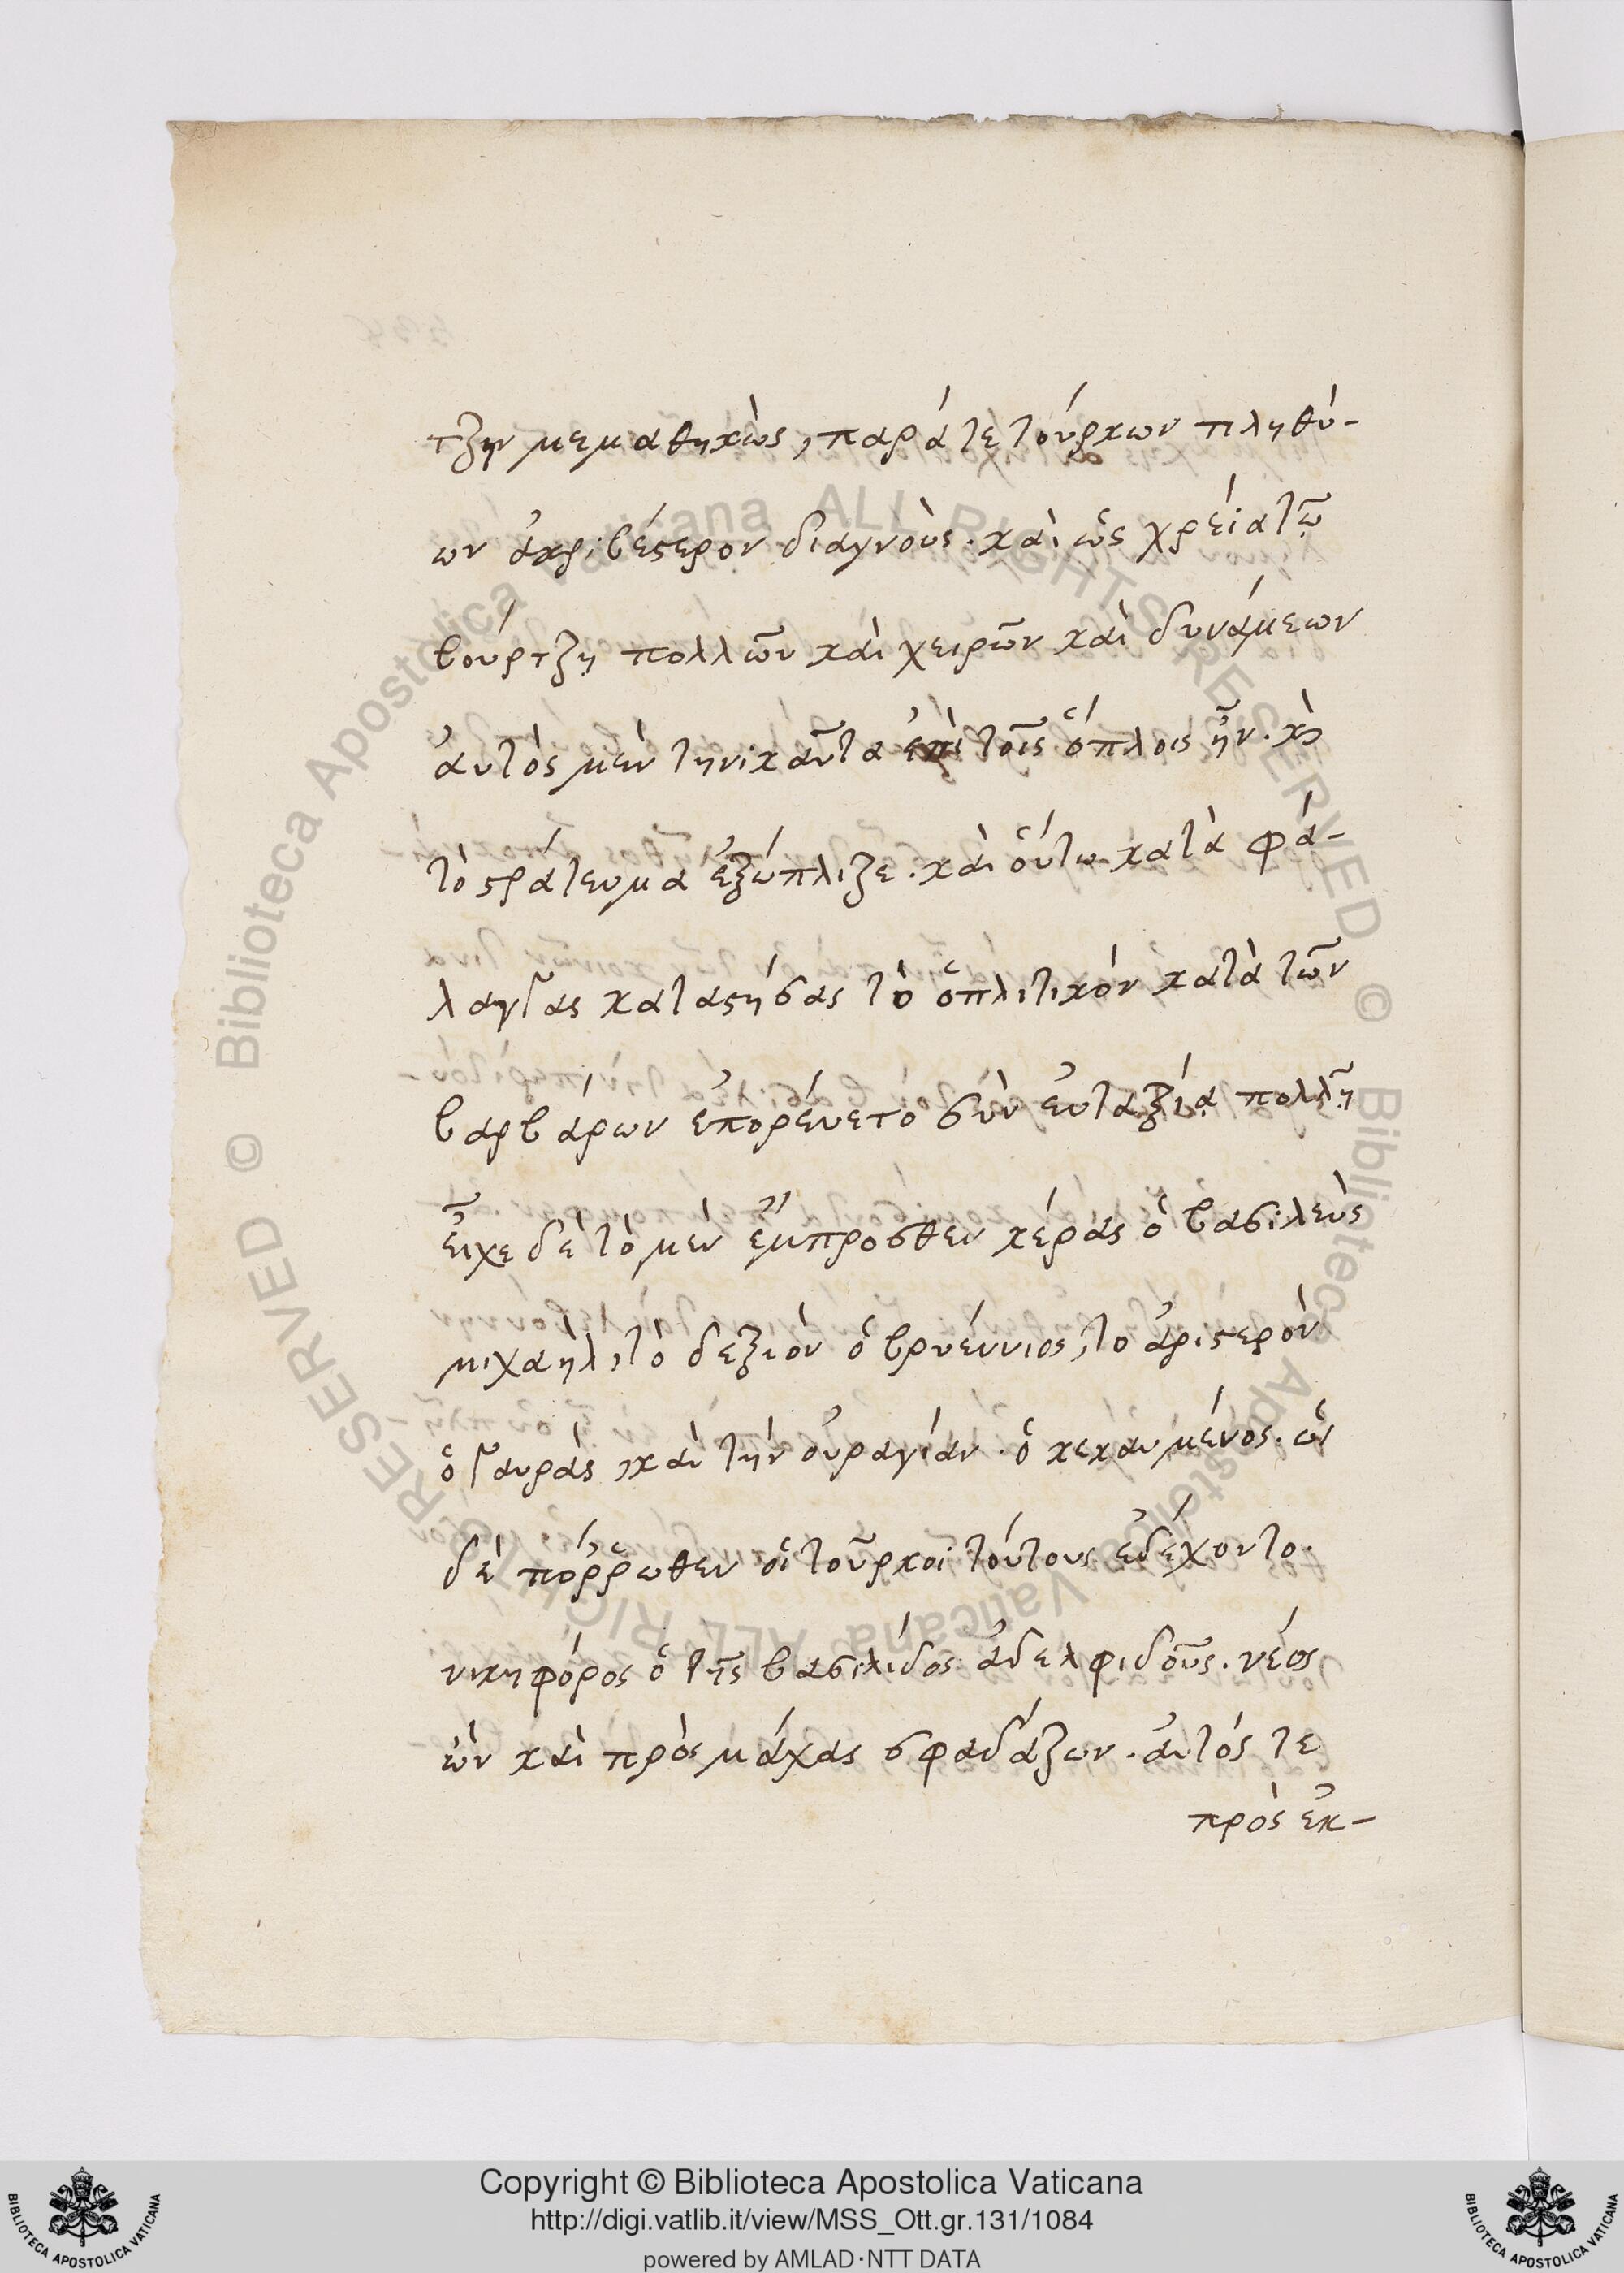 τζην μεμαθηκὼς, παρά τε τούρκων πληθύ-
ων ἀκριβέστερον διαγνοὺς. καὶ ὡς χρεία τῶ
βούρτζη πολλῶν καὶ χειρῶν καὶ δυνάμεων
ἀυτὸς μὲν τηνικαῦτα ἐπὶ τοῖς ὅπλοις ἦν. κὶ
τὸ στράτευμα ἐξώπλιζε. καὶ ὅυτω κατὰ φά-
λαγγας καταστήσας τὸ ὁπλιτικόν κατὰ τῶν
βαρβάρων ἐπορέυετο σὺν ἐυταξία πολλῆ
εἶχε δὲ τὸ μὲν ἔμπροσθεν κέρας ὁ βασιλεὺς
μιχαὴλ, τὸ δεξιὸν ὁ βρυέννιος, το ἀριστερὸν
ὁ γαυρᾶς, καὶ τὴν ὀυραγίαν. ὁ κεκαυμένος. ὡς
δὲ πόῤῥωθεν οἱ τοῦρκοι τούτους ἐδέχοντο.
νικηφόρος ὁ τῆς βασιλίδος ἀδελφιδοῦς. νέος
ὢν καὶ πρὸς μάχας σφαδάζων. ἀυτός τε
πρὸς ἐκ-
Copyright © Biblioteca Apostolica Vaticana
http://digi.vatlib.it/view/MSS_Ott.gr.131/1084
powered by AMLAD·NTT DATA
BIBLIOTECA APOSTOLICA VATICANA
BIBLIOTECA APOSTOLICA VATICANA
© Biblioteca Apostolica Vaticana ALL RIGHTS RESERVED
© Biblioteca Apostolica Vaticana ALL RIGHTS RESERVED